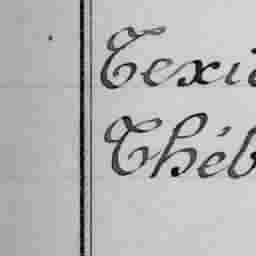 Texie
Théb